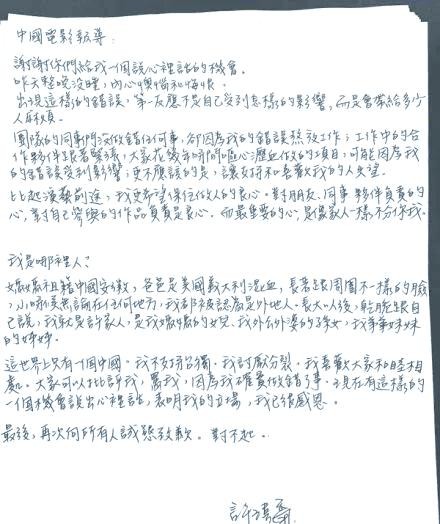 中國電影報導：
謝謝你們給我一個說心裡話的機會。
昨天整晚沒睡，內心懊惱和悔恨。
出現這樣的錯誤，第一反應不是自己受到怎樣的影響，而是會帶給多少
人麻煩。
團隊的同事們沒做錯任何事，卻因為我的錯誤熬夜工作；工作中的合
作夥伴跟著緊張，大家花幾年時間嘔心瀝血做的項目，可能因為我
的錯誤受到影響；更不應該的是，讓支持和喜歡我的人失望。
比起演藝前途，我更希望保住做人的良心。對朋友、同事夥伴負責的
心，對自己參與的作品負責是良心，而最重要的心，是像家人一樣不分你我。
我是哪裡人？
媽媽祖籍中國安徽，爸爸是美國義大利混血，長著跟周圍不一樣的臉
，小時候無論在任何地方，我都被認為是外地人。長大以後，乾脆跟自
己說，我就是許家人，是我媽媽的女兒、我外公外婆的孫女，我弟弟妹妹
的姊姊。
這世界上只有一個中國。我不支持台獨。我討厭分裂。我喜歡大家和睦相
處。大家可以批評我，罵我，因為我確實做錯了事。現在有這樣的
一個機會說出心裡話，表明我的立場，我已很感恩。
最後，再次向所有人誠懇致歉。對不起。
許瑋甯